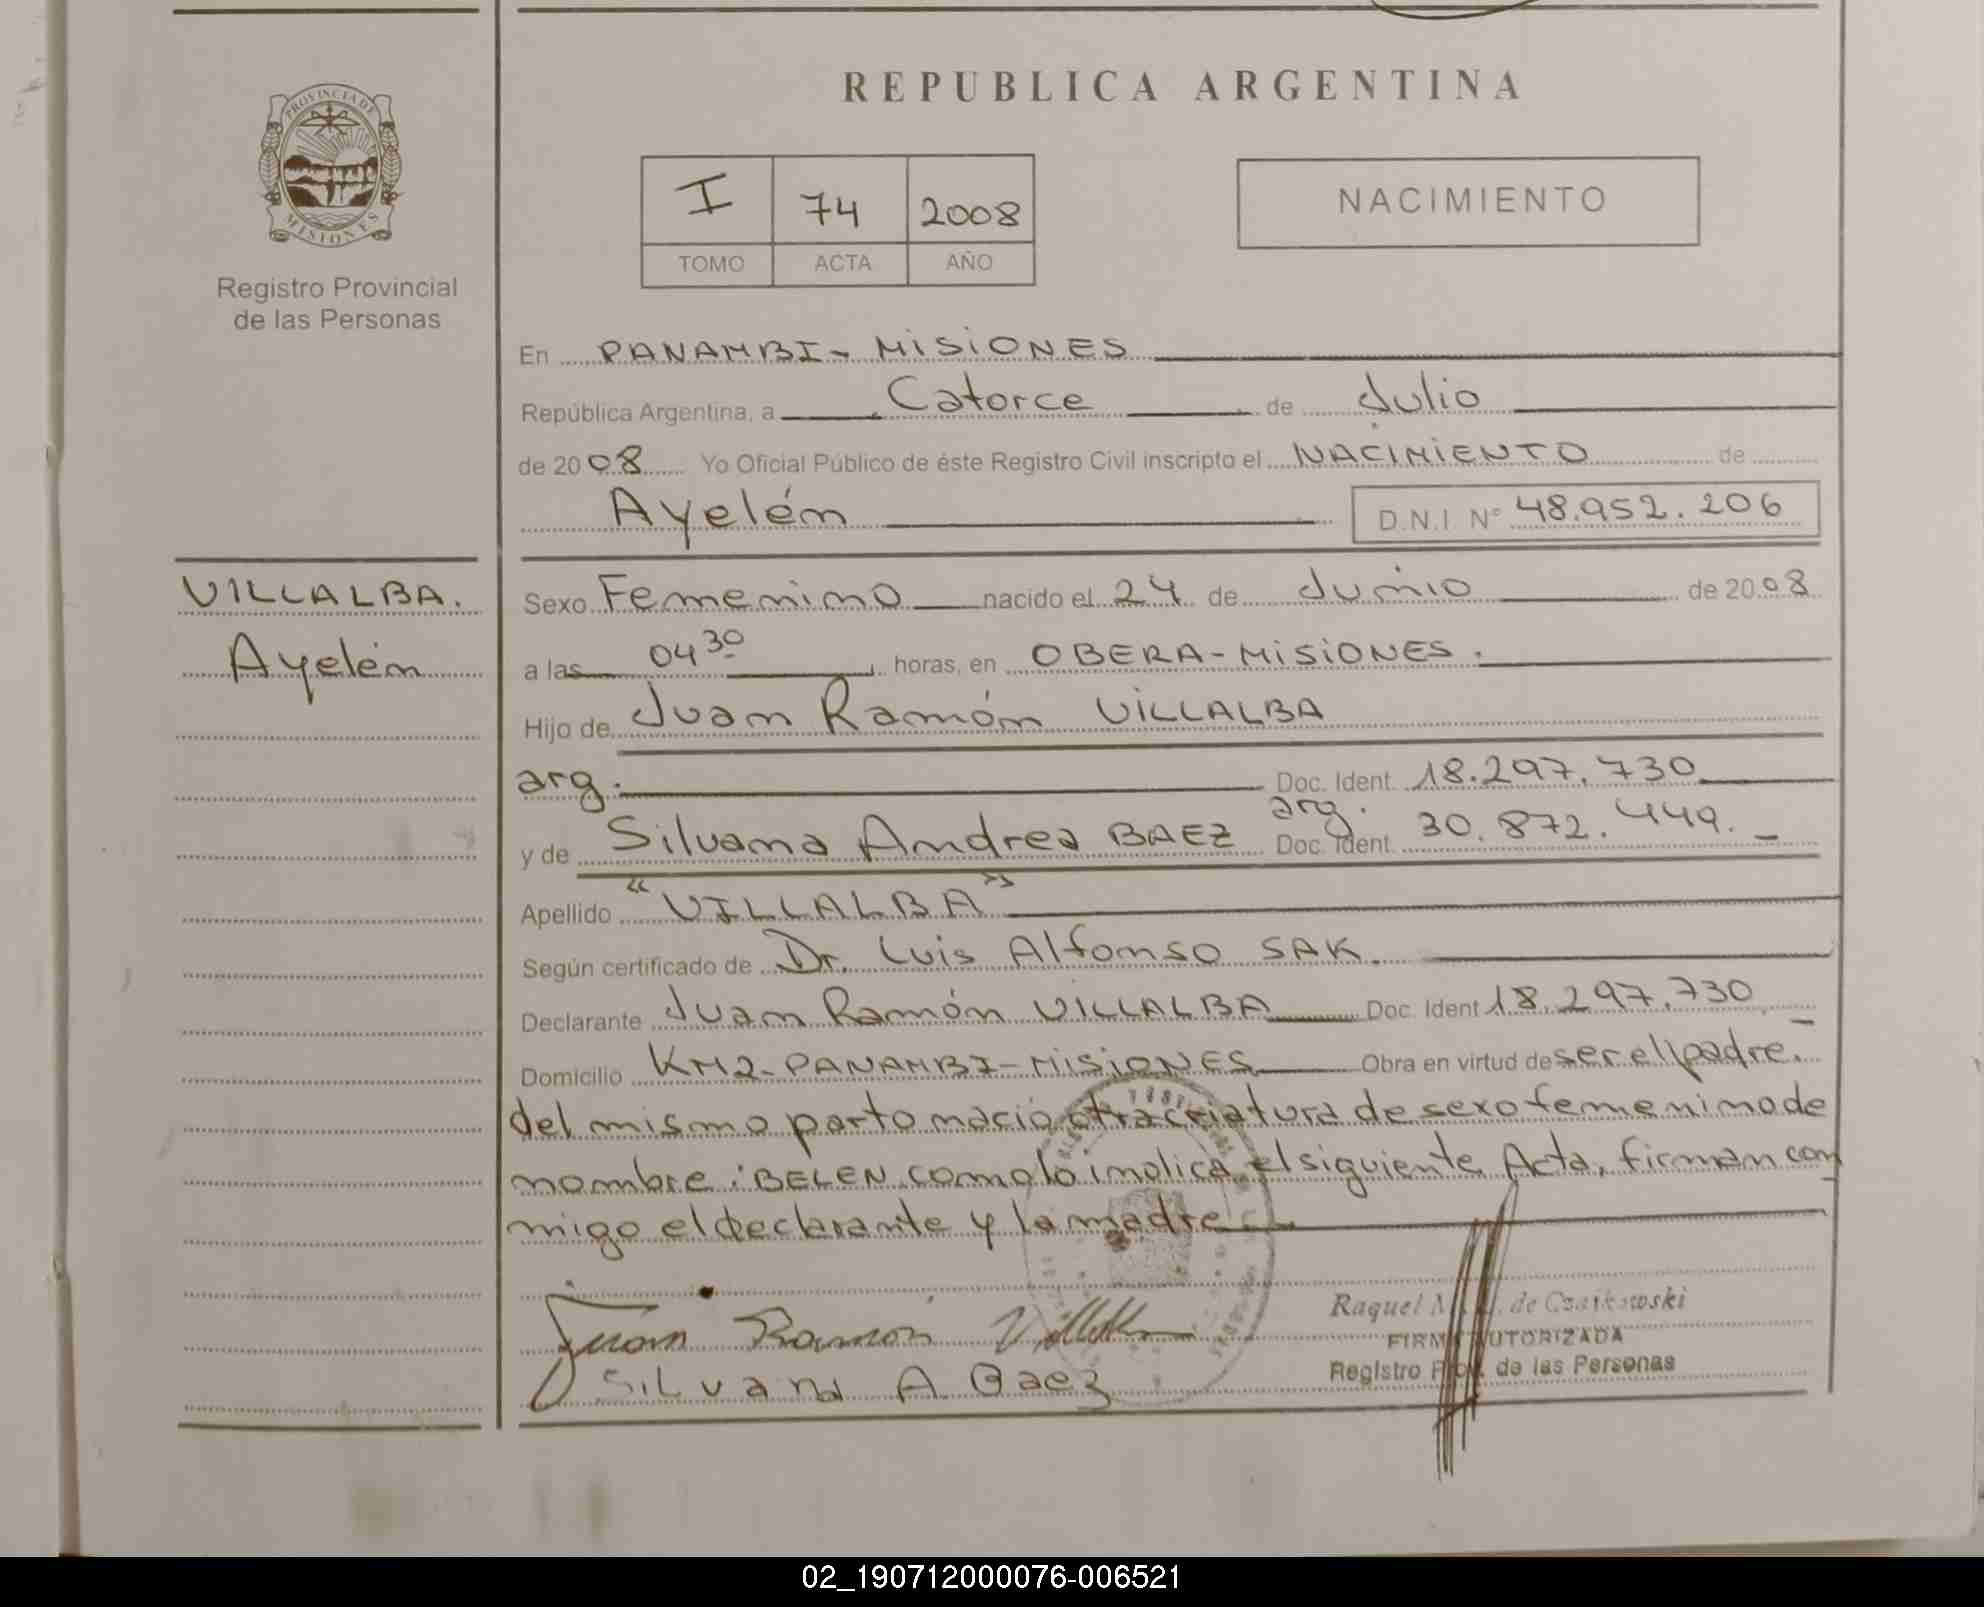 REPUBLICA ARGENTINA
PROVINCIA DE
MISIONES
Registro Provincial
de las Personas
I 74 2008
TOMO ACTA AÑO
NACIMIENTO
En PANAMBI - MISIONES
República Argentina, a Catorce de Julio
de 2008 Yo Oficial Público de éste Registro Civil inscripto el NACIMIENTO de
Ayelén D.N.I Nº 48.952.206
VILLALBA.
Ayelén
Sexo Femenino nacido el 24 de Junio de 2008
a las 04 30 horas, en OBERA - MISIONES.
Hijo de Juan Ramón VILLALBA
arg. Doc. Ident. 18.297.730
y de Silvana Andrea BAEZ arg. Doc. Ident. 30.872.449.-
Apellido "VILLALBA"
Según certificado de Dr. Luis Alfonso SAK.
Declarante Juan Ramón VILLALBA Doc. Ident 18.297.730
Domicilio KM2 - PANAMBI - MISIONES Obra en virtud de ser el padre.-
del mismo parto nació otra criatura de sexo femenino de
nombre: BELEN como lo indica el siguiente Acta, firman con
migo el declarante y la madre
Juan Ramon Villalba
Silvana A Baez
Raquel de Czaikowski
FIRMA AUTORIZADA
Registro Prov. de las Personas
02_190712000076-006521